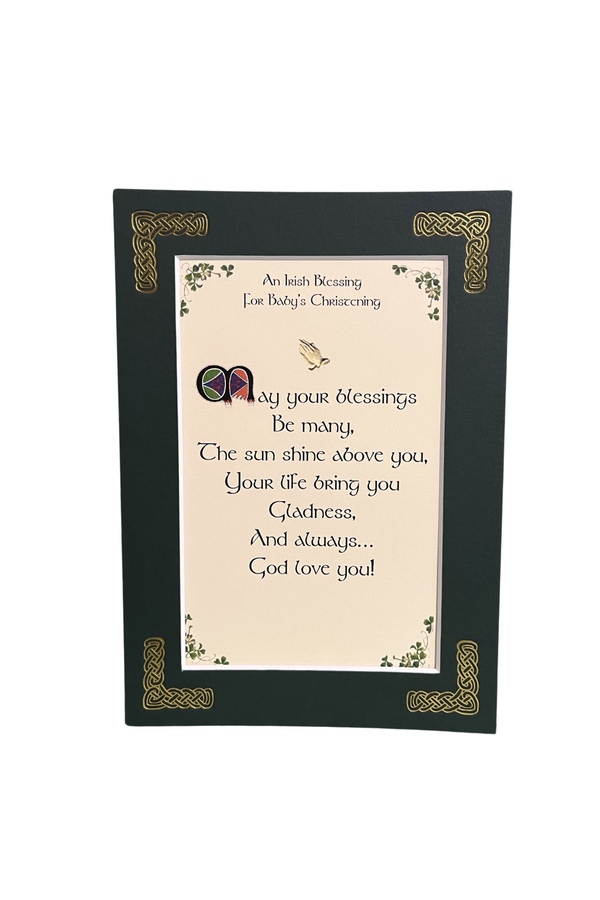 An Irish Blessing
For Baby's Christening
May your blessings
Be many,
The sun shine above you,
Your life bring you
Gladness,
And always...
God love you!